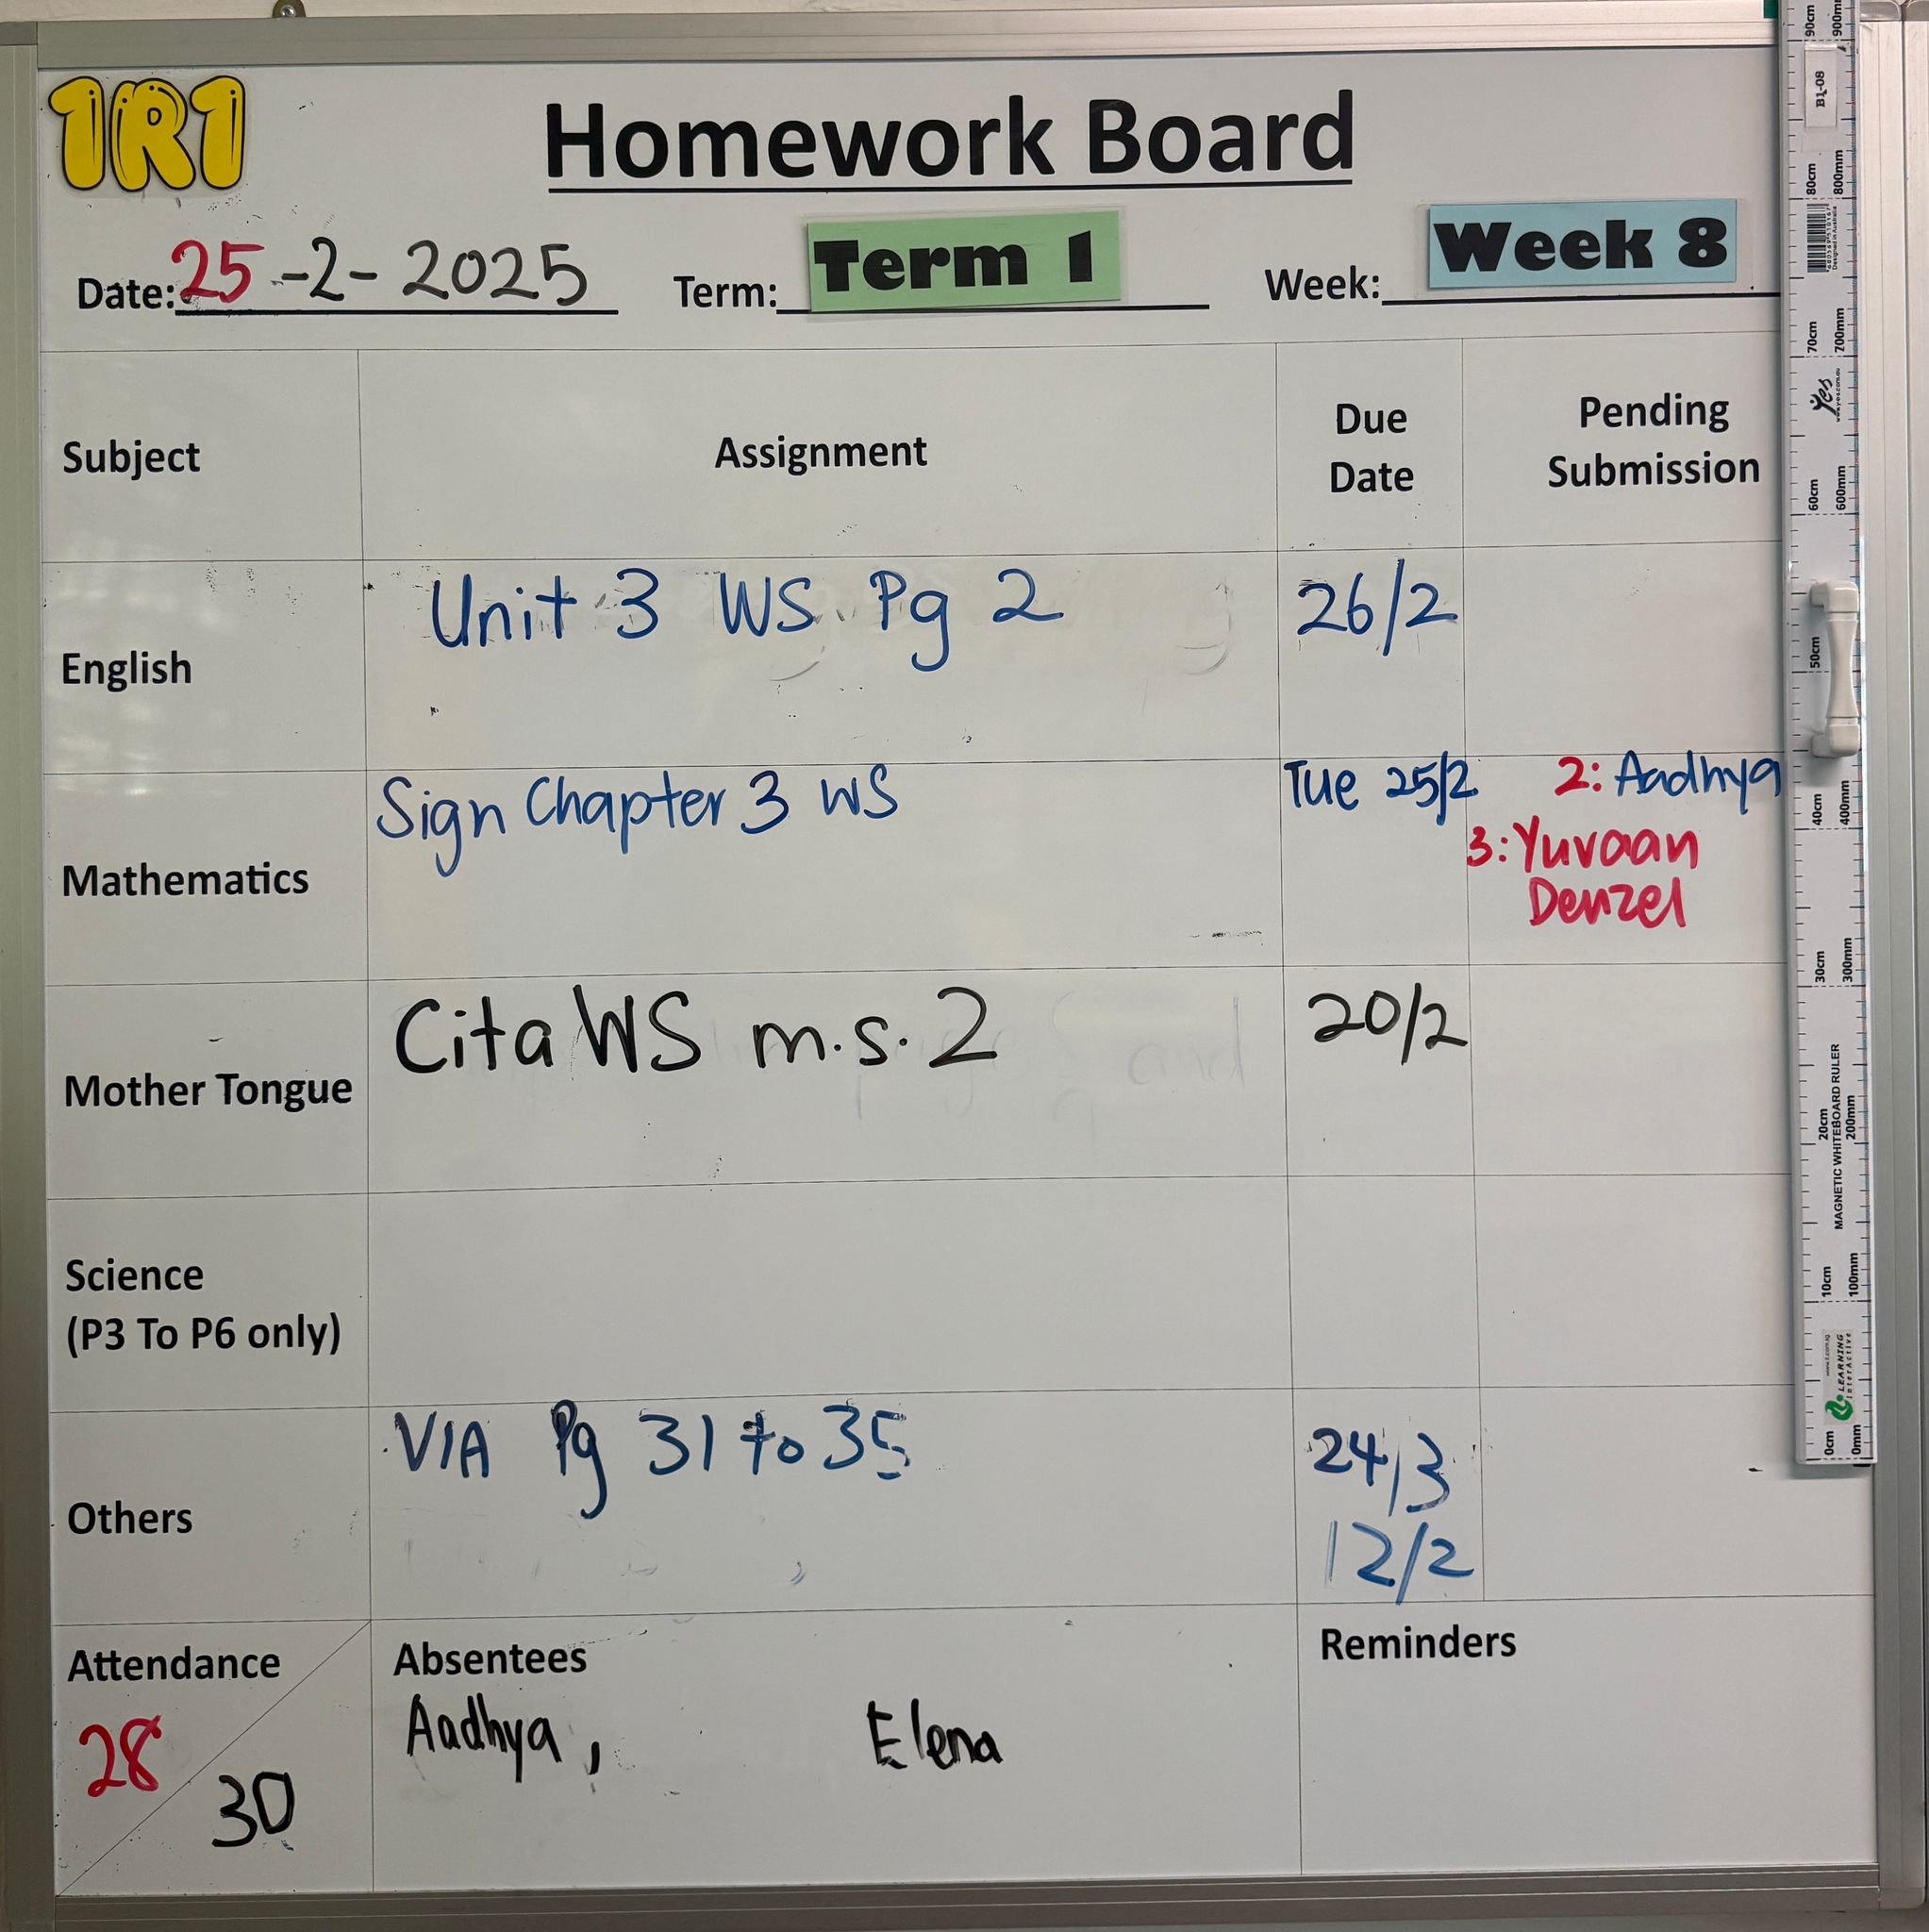 1R1
Homework Board
Date: 25-2-2025 Term: Term 1 Week: Week 8
Subject Assignment Due Date Pending Submission
English Unit 3 WS Pg 2 26/2
Mathematics Sign Chapter 3 WS Tue 25/2 2: Aadhya
3: Yuvaan
Denzel
Mother Tongue Cita WS m.s. 2 20/2
Science
(P3 To P6 only)
Others VIA Pg 31 to 35 24/3
12/2
Attendance Absentees Reminders
28 Aadhya, Elena
30
90cm 900mm
B1-08
80cm 800mm
70cm 700mm
Yes
60cm 600mm
50cm
40cm 400mm
30cm 300mm
MAGNETIC WHITEBOARD RULER
20cm 200mm
10cm 100mm
LEARNING
interActive
0cm 0mm